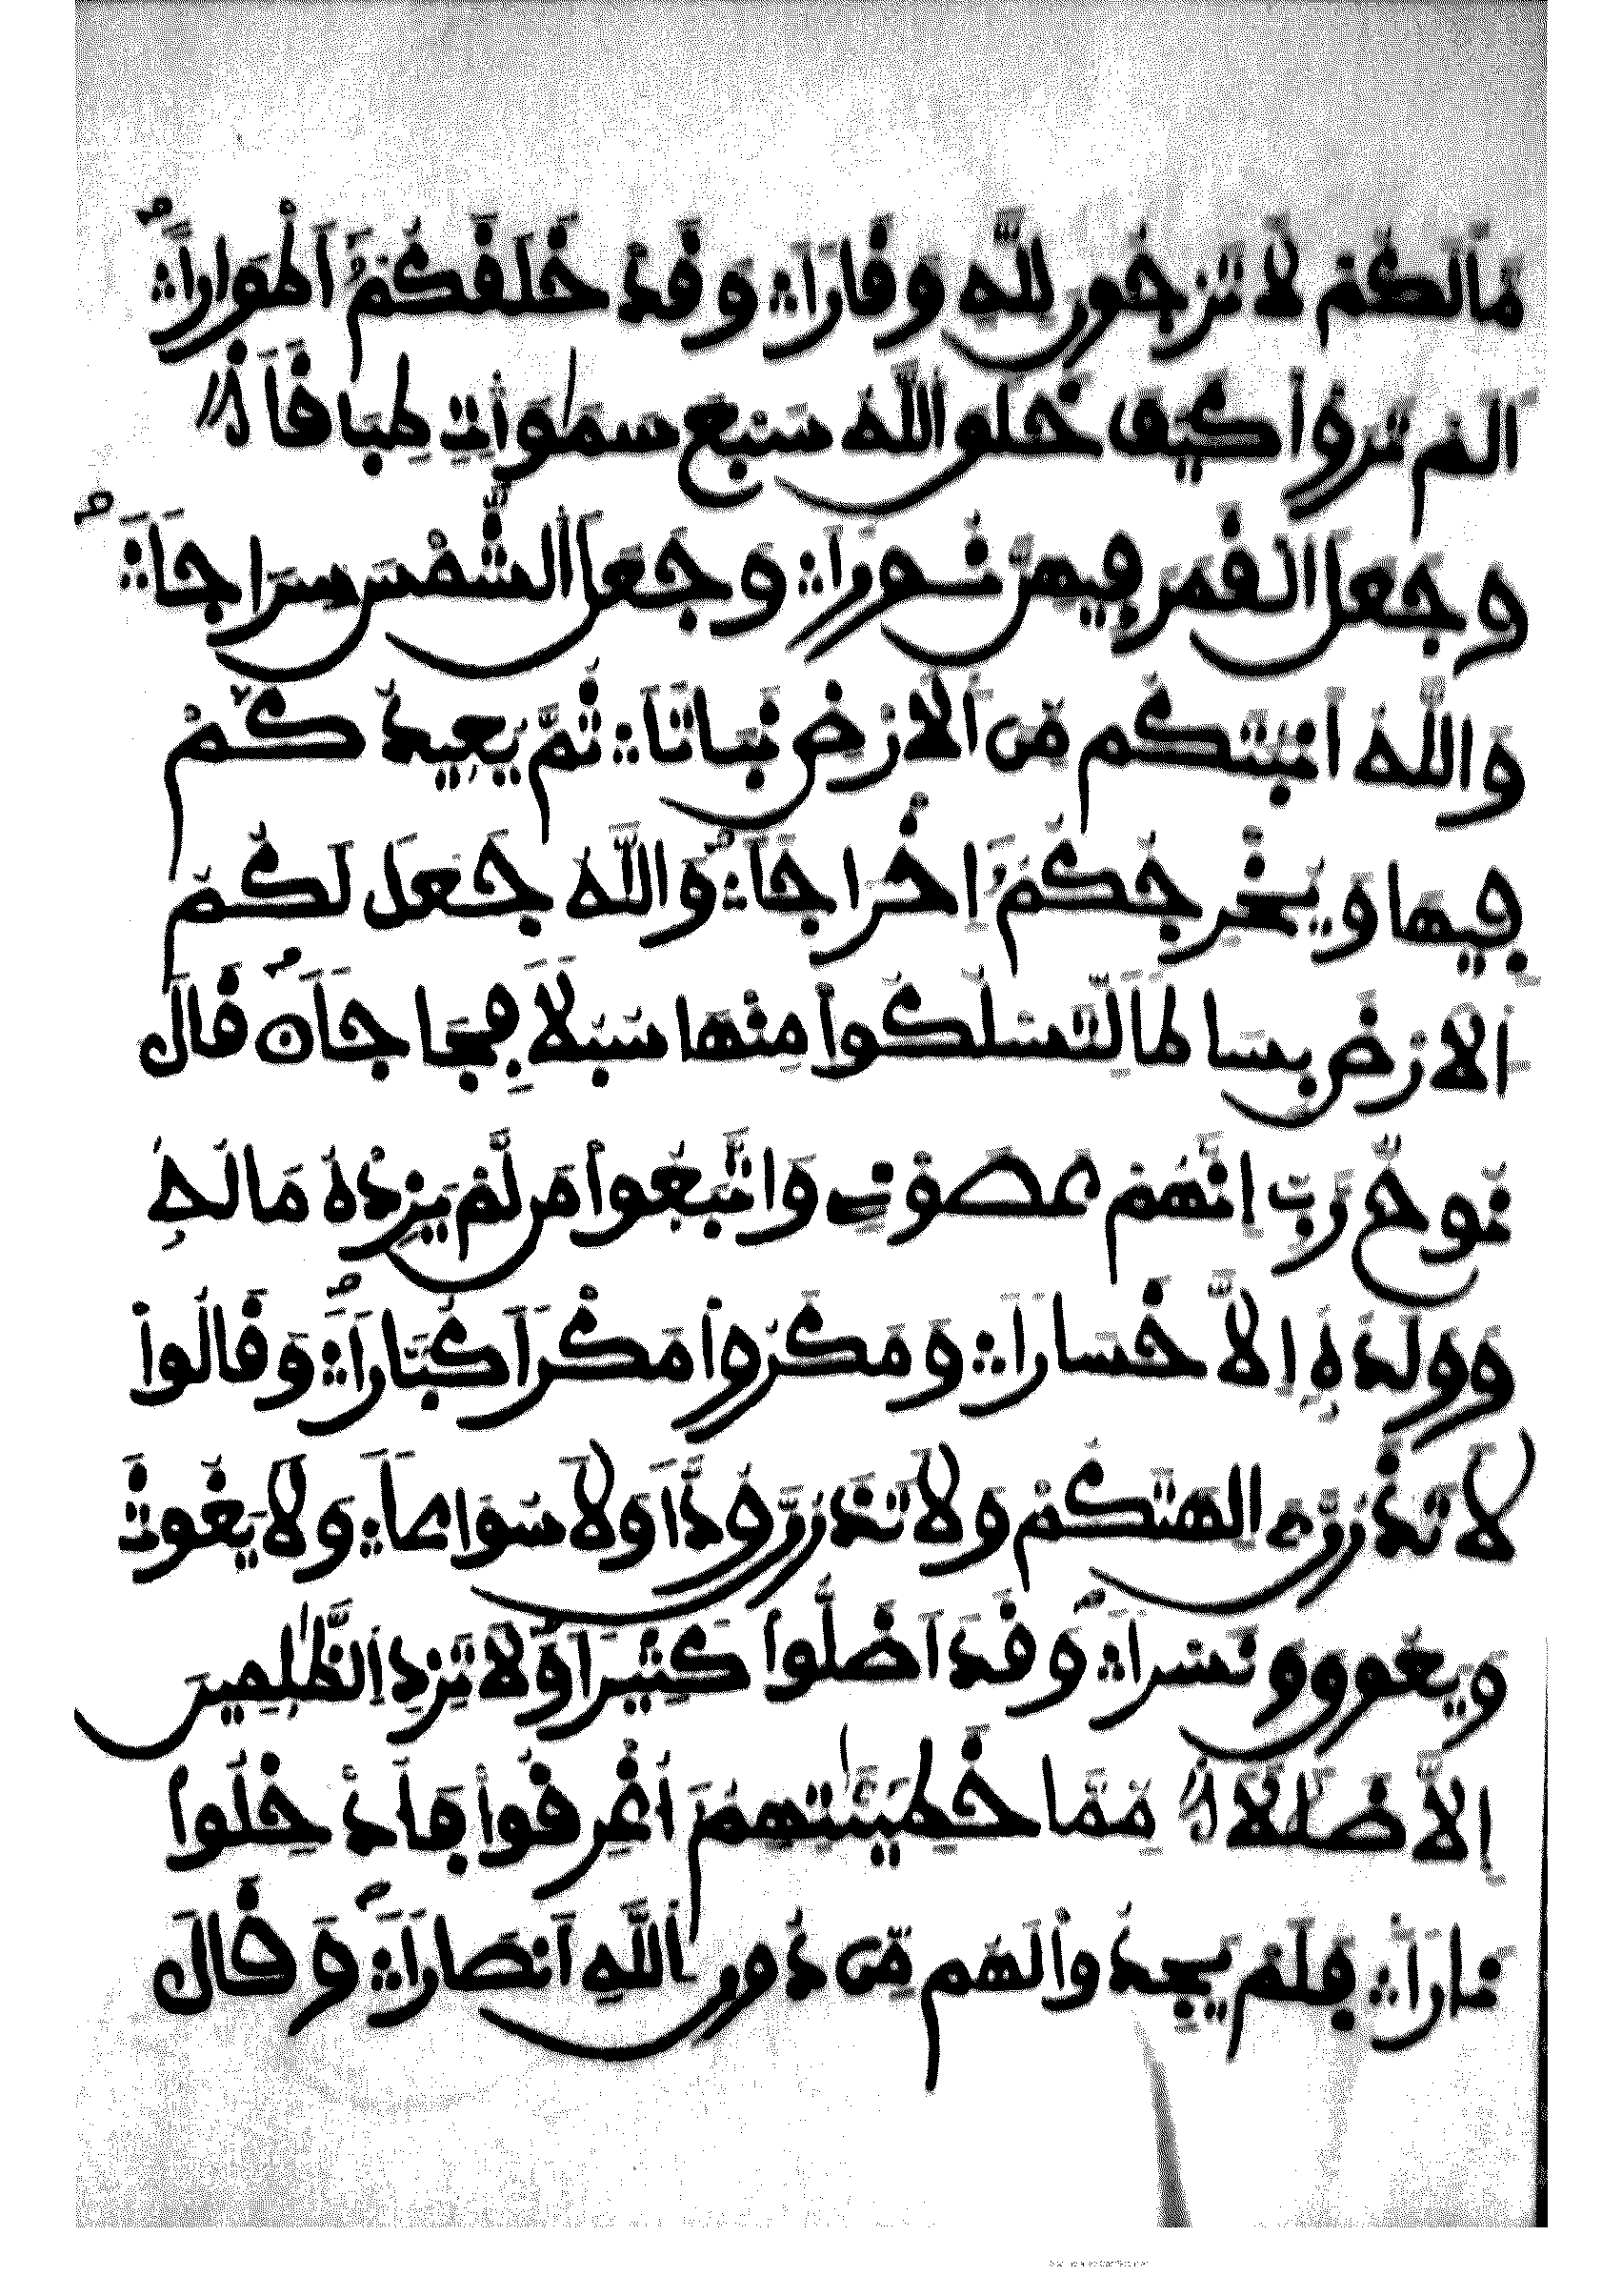 مَالَكُمْ لَا تَرْجُونَ لِلَّهِ وَقَارًا وَقَدْ خَلَقَكُمُ أَطْوَارًا
أَلَمْ تَرَوْا كَيْفَ خَلَقَ اللَّهُ سَبْعَ سَمَٰوَاتٍ طِبَاقًا
وَجَعَلَ الْقَمَرَ فِيهِنَّ نُورًا وَجَعَلَ الشَّمْسَ سِرَاجًا
وَاللَّهُ أَنْبَتَكُم مِّنَ الْأَرْضِ نَبَاتًا ثُمَّ يُعِيدُكُمْ
فِيهَا وَيُخْرِجُكُمُ إِخْرَاجًا وَاللَّهُ جَعَلَ لَكُمُ
الْأَرْضَ بِسَاطًا لِّتَسْلُكُوا مِنْهَا سُبُلًا فِجَاجًا قَالَ
نُوحٌ رَّبِّ إِنَّهُمْ عَصَوْنِي وَاتَّبَعُوا مَن لَّمْ يَزِدْهُ مَالُهُ
وَوُلْدُهُ إِلَّا خَسَارًا وَمَكَرُوا مَكْرًا كُبَّارًا وَقَالُوا
لَا تَذَرُنَّ ءَالِهَتَكُمْ وَلَا تَذَرُنَّ وُدًّا وَلَا سُوَاعًا وَلَا يَغُوثَ
وَيَعُوقَ وَنَسْرًا وَقَدَ أَضَلُّوا كَثِيرًا وَلَا تَزِدِ الظَّٰلِمِينَ
إِلَّا ضَلَٰلًا مِّمَّا خَطِيئَٰتِهِمُ أُغْرِقُوا فَأُدْخِلُوا
نَارًا فَلَمْ يَجِدُوا لَهُم مِّن دُونِ اللَّهِ أَنصَارًا وَقَالَ